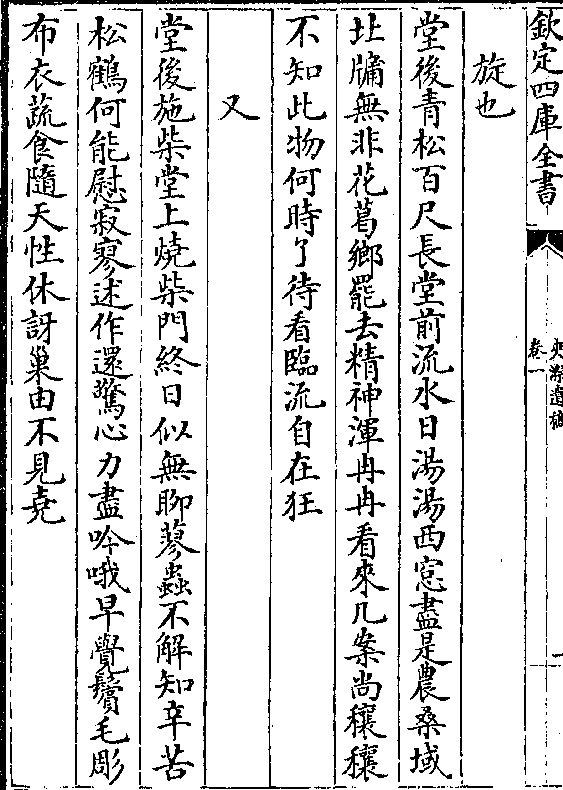 欽定四庫全書
卷一
旋也
堂後青松百尺長堂前流水日湯湯西窓盡是農桑域
北牖無非花葛鄉罷去精神渾冉冉看來几案尚穰穰
不知此物何時了待看臨流自在狂
又
堂後施柴堂上燒柴門終日似無聊蓼蟲不解知辛苦
松鶴何能慰寂寥述作還驚心力盡吟哦早覺鬢毛彫
布衣蔬食隨天性休訝巢由不見堯